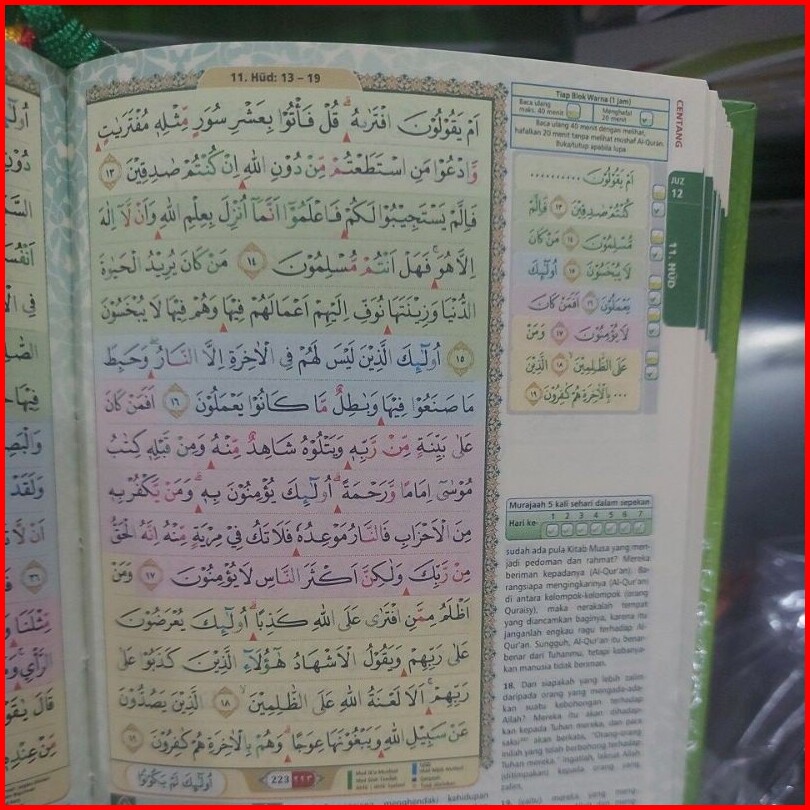 11. Hūd: 13 – 19
اَمْ يَقُوْلُوْنَ افْتَرٰىهُ ۗ قُلْ فَأْتُوْا بِعَشْرِ سُوَرٍ مِّثْلِهٖ مُفْتَرَيٰتٍ
وَّادْعُوْا مَنِ اسْتَطَعْتُمْ مِّنْ دُوْنِ اللّٰهِ اِنْ كُنْتُمْ صٰدِقِيْنَ ١٣
فَاِلَّمْ يَسْتَجِيْبُوْا لَكُمْ فَاعْلَمُوْٓا اَنَّمَآ اُنْزِلَ بِعِلْمِ اللّٰهِ وَاَنْ لَّآ اِلٰهَ
اِلَّا هُوَ ۚ فَهَلْ اَنْتُمْ مُّسْلِمُوْنَ ١٤ مَنْ كَانَ يُرِيْدُ الْحَيٰوةَ
الدُّنْيَا وَزِيْنَتَهَا نُوَفِّ اِلَيْهِمْ اَعْمَالَهُمْ فِيْهَا وَهُمْ فِيْهَا لَا يُبْخَسُوْنَ
١٥ اُولٰۤىِٕكَ الَّذِيْنَ لَيْسَ لَهُمْ فِى الْاٰخِرَةِ اِلَّا النَّارُ ۖ وَحَبِطَ
مَا صَنَعُوْا فِيْهَا وَبٰطِلٌ مَّا كَانُوْا يَعْمَلُوْنَ ١٦ اَفَمَنْ كَانَ
عَلٰى بَيِّنَةٍ مِّنْ رَّبِّهٖ وَيَتْلُوْهُ شَاهِدٌ مِّنْهُ وَمِنْ قَبْلِهٖ كِتٰبُ
مُوْسٰىٓ اِمَامًا وَّرَحْمَةً ۗ اُولٰۤىِٕكَ يُؤْمِنُوْنَ بِهٖ ۗ وَمَنْ يَّكْفُرْ بِهٖ
مِنَ الْاَحْزَابِ فَالنَّارُ مَوْعِدُهٗ فَلَا تَكُ فِيْ مِرْيَةٍ مِّنْهُ اِنَّهُ الْحَقُّ
مِنْ رَّبِّكَ وَلٰكِنَّ اَكْثَرَ النَّاسِ لَا يُؤْمِنُوْنَ ١٧ وَمَنْ
اَظْلَمُ مِمَّنِ افْتَرٰى عَلَى اللّٰهِ كَذِبًا ۗ اُولٰۤىِٕكَ يُعْرَضُوْنَ
عَلٰى رَبِّهِمْ وَيَقُوْلُ الْاَشْهَادُ هٰٓؤُلَاۤءِ الَّذِيْنَ كَذَبُوْا عَلٰى
رَبِّهِمْ ۚ اَلَا لَعْنَةُ اللّٰهِ عَلَى الظّٰلِمِيْنَ ١٨ الَّذِيْنَ يَصُدُّوْنَ
عَنْ سَبِيْلِ اللّٰهِ وَيَبْغُوْنَهَا عِوَجًا ۗ وَهُمْ بِالْاٰخِرَةِ هُمْ كٰفِرُوْنَ ١٩
اُولٰۤىِٕكَ لَمْ يَكُوْنُوْا
223 ٢٢٣
Tiap Blok Warna (1 Jam)
Baca ulang maks. 40 menit
Menghafal 20 menit
Baca ulang 40 menit dengan melihat,
hafalkan 20 menit tanpa melihat moshaf Al-Qur'an.
Buka/tutup apabila lupa
CENTANG
JUZ
12
11. HŪD
اَمْ يَقُوْلُوْنَ ..........
كُنْتُمْ صٰدِقِيْنَ ١٣ فَاِلَّمْ
مُّسْلِمُوْنَ ١٤ مَنْ كَانَ
لَا يُبْخَسُوْنَ ١٥ اُولٰۤىِٕكَ
يَعْمَلُوْنَ ١٦ اَفَمَنْ كَانَ
لَا يُؤْمِنُوْنَ ١٧ وَمَنْ
عَلَى الظّٰلِمِيْنَ ١٨ الَّذِيْنَ
... بِالْاٰخِرَةِ هُمْ كٰفِرُوْنَ ١٩
Murajaah 5 kali sehari dalam sepekan
Hari ke- 1 2 3 4 5 6 7
sudah ada pula Kitab Musa yang men-
jadi pedoman dan rahmat? Mereka
beriman kepadanya (Al-Qur'an). Ba-
rangsiapa mengingkarinya (Al-Qur'an)
di antara kelompok-kelompok (orang
Quraisy), maka nerakalah tempat
yang diancamkan baginya, karena itu
janganlah engkau ragu terhadap Al-
Qur'an. Sungguh, Al-Qur'an itu benar-
benar dari Tuhanmu, tetapi kebanya-
kan manusia tidak beriman.
18. Dan siapakah yang lebih zalim
daripada orang yang mengada-ada-
kan suatu kebohongan terhadap
Allah? Mereka itu akan dihadap-
kan kepada Tuhan mereka, dan para
saksi akan berkata, "Orang-orang
inilah yang telah berbohong terhadap
Tuhan mereka." Ingatlah, laknat Allah
(ditimpakan) kepada orang yang
zalim,
19. (yaitu) mereka yang
menghendaki kehidupan